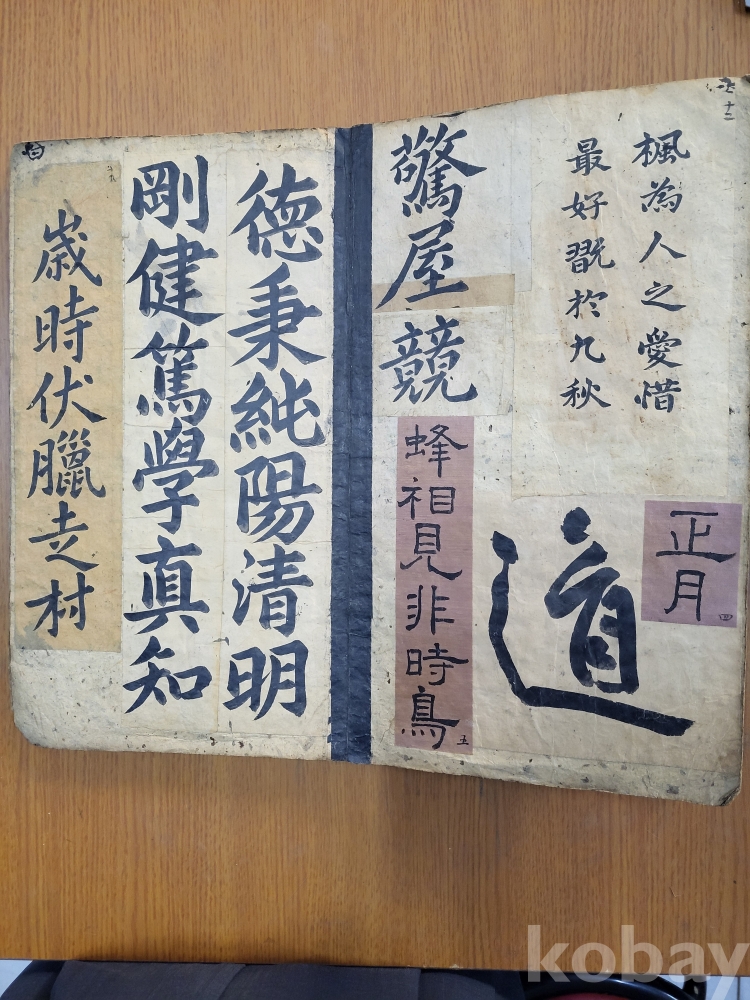 楓為人之愛惜
最好翫於九秋
正月
四
道
驚屋
競
蜂相見非時鳥
五
德秉純陽清明
剛健篤學真知
歲時伏臘走村
kobay